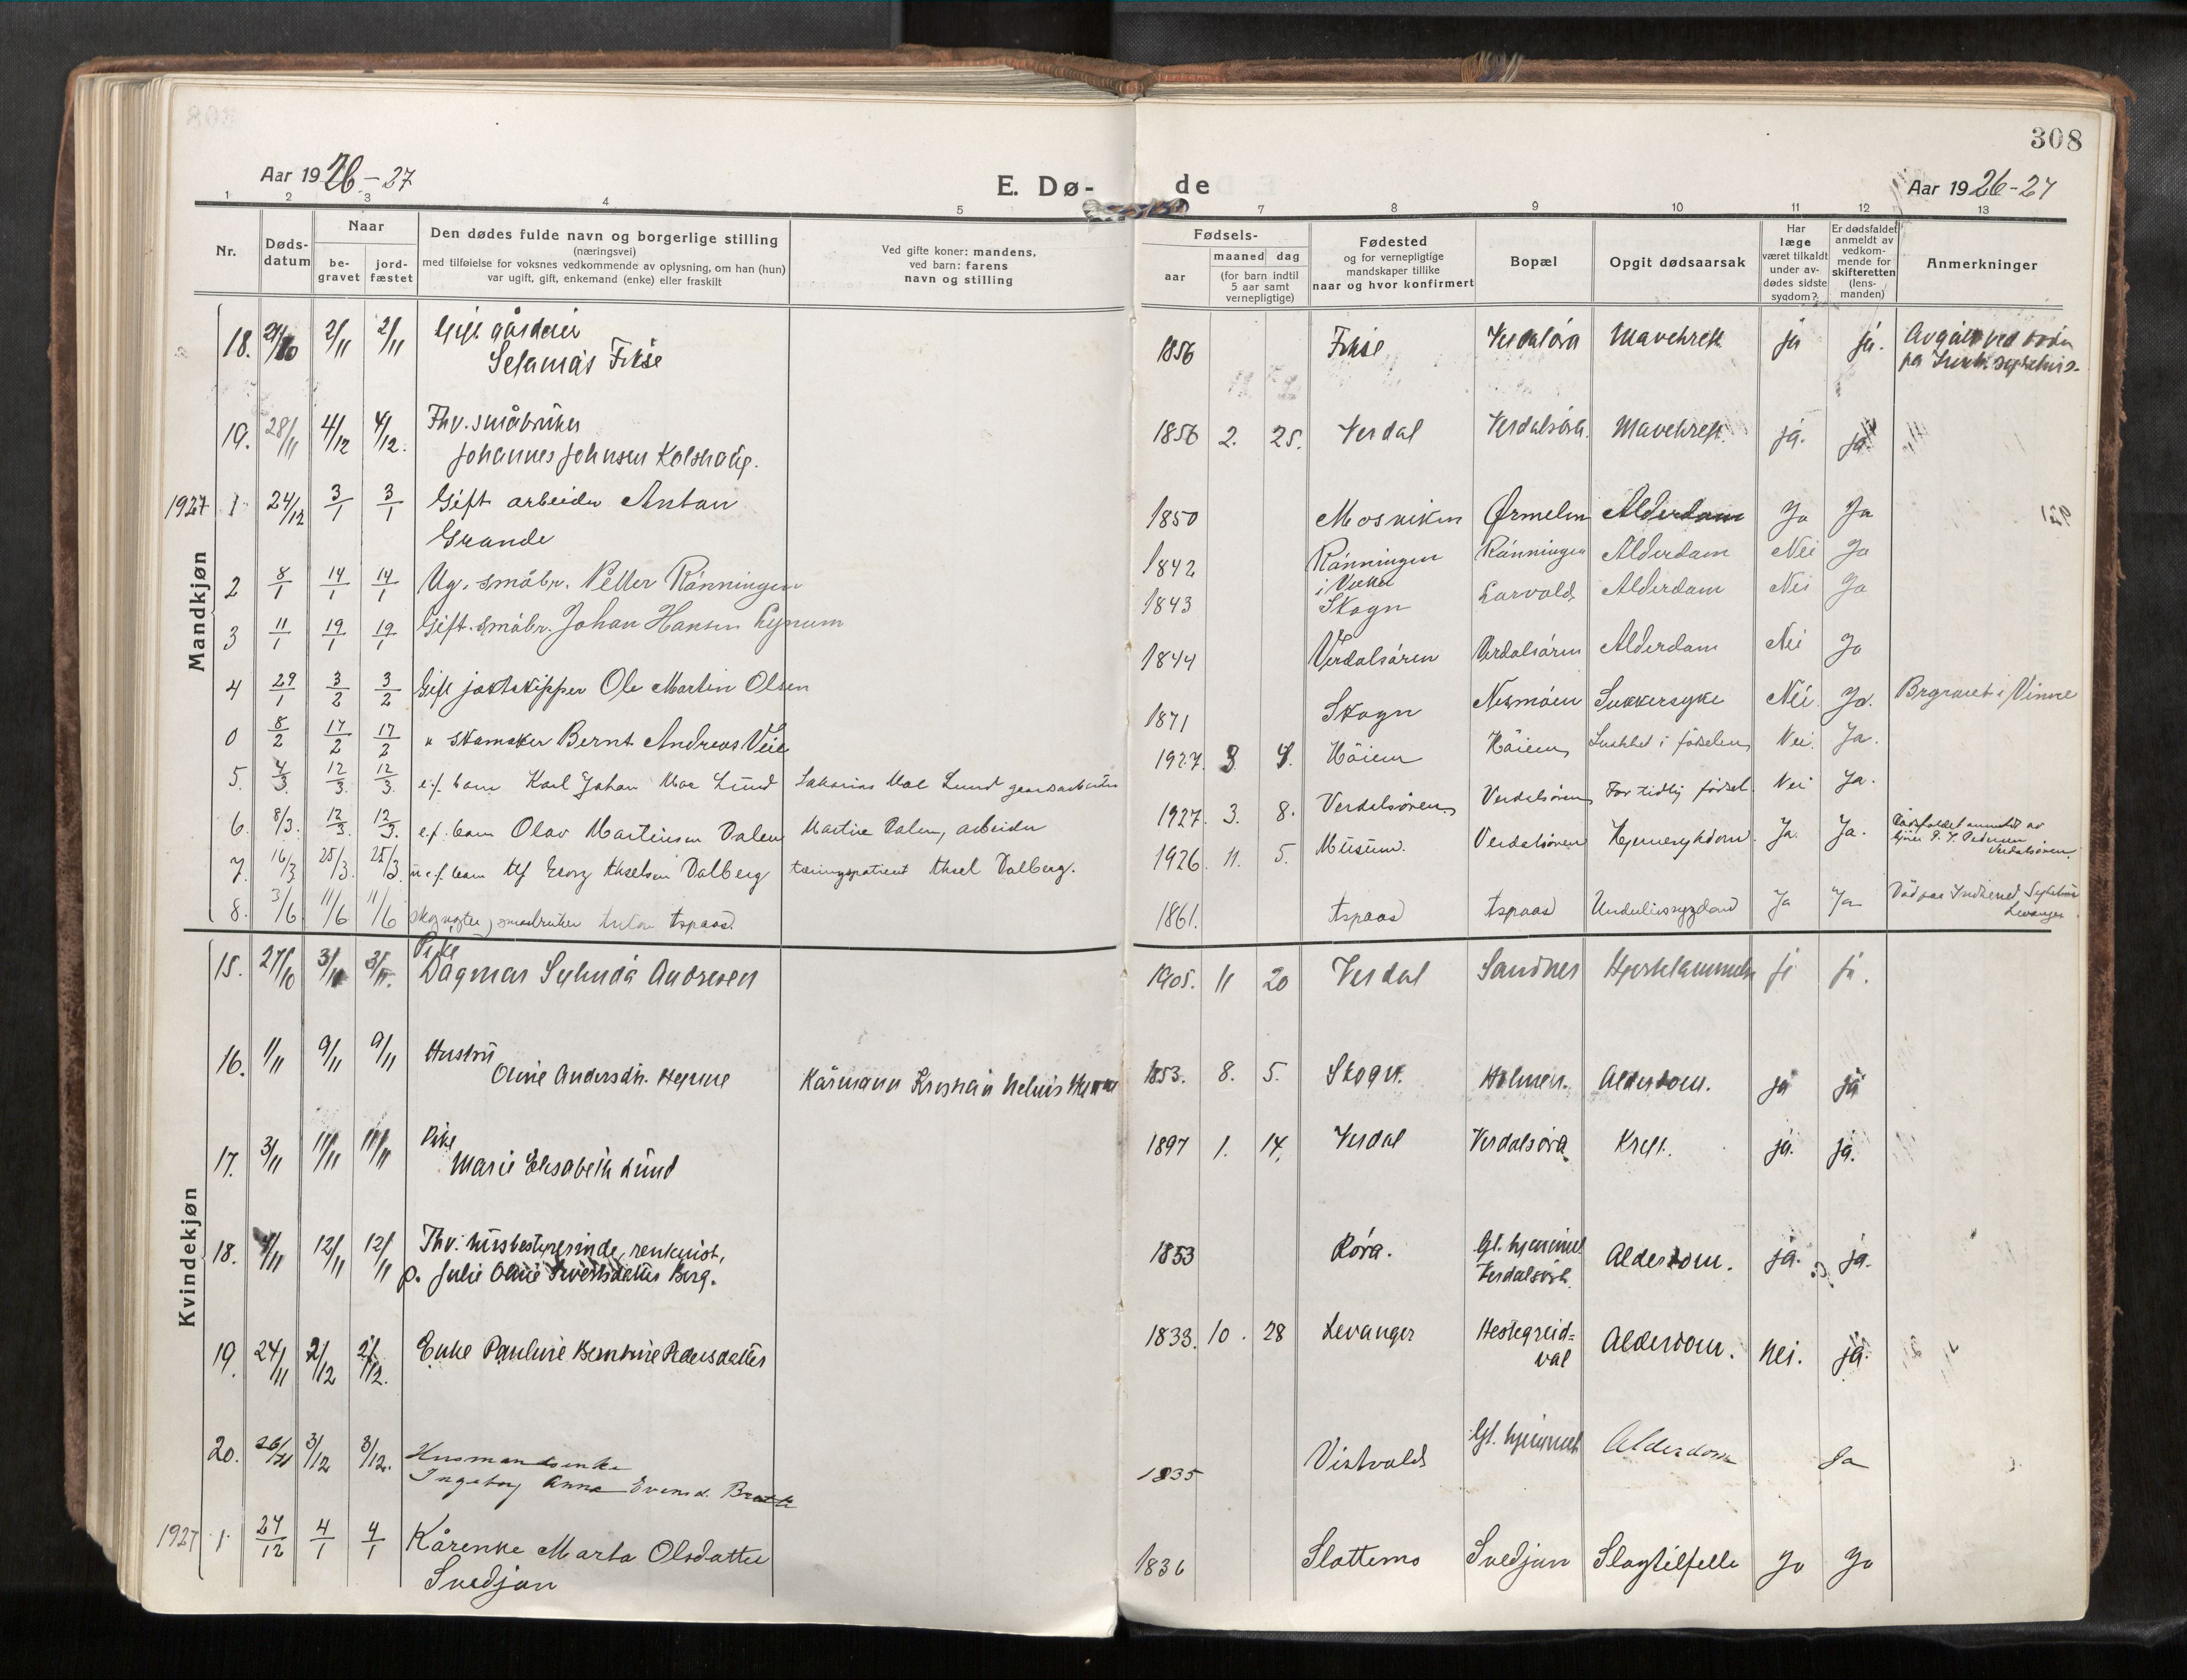 308
Aar 1926-27
E. Dø-
de
Aar 1926-27
1 2 3 4 5 7 8 9 10 11 12 13
Nr.
Døds-
datum
Naar
be-
gravet
jord-
fæstet
Den dødes fulde navn og borgerlige stilling
(næringsvei)
med tilføielse for voksnes vedkommende av oplysning, om han (hun)
var ugift, gift, enkemand (enke) eller fraskilt
Ved gifte koner: mandens,
ved barn: farens
navn og stilling
Fødsels-
aar
maaned dag
(for barn indtil
5 aar samt
vernepligtige)
Fødested
og for vernepligtige
mandskaper tillike
naar og hvor konfirmert
Bopæl
Opgit dødsaarsak
Har
læge
været tilkaldt
under av-
dødes sidste
sygdom?
Er dødsfaldet
anmeldt av
vedkom-
mende for
skifteretten
(lens-
manden)
Anmerkninger
Mandkjøn
18. 2/11 2/11 Gift gårdeier
Fikse
1856 Fikse Verdalsöra Mavekreft ja ja.
19. 28/11 4/12 4/12. Fhv. småbruker
Johannes Johnsen Kolshaug.
1856 2. 25. Verdal Verdalsöra. Mavekreft. ja. ja.
1927 1 24/12 3/1 3/1 Gift arbeider Anton
Grande
1850 Mosviken Ørmelen Alderdom Ja Ja
2 8/1 14/1 14/1 Ug. småbr. Petter Rönningen
1842 Rönningen Rönningen Alderdom Nei Ja
3 11/1 19/1 19/1 Gift. småbr. Johan Hansen Lynum
1843 Skogn Alderdom Nei Ja
4 29/1 3/2 3/2 Gift jaktskipper Ole Martin Olsen
1844 Verdalsören Verdalsören Alderdom Nei Ja
0 8/2 17/2 17/2 " skomaker Bernt Andreas Veie
1871 Skogn Nesmöen Sukkersyke Nei Ja. Begravet i Vinne
5. 4/3 12/3. 12/3. e.f. barn Karl Johan Moe Lund Sakarias Moe Lund gaardsarbeider
1927. 3 4. Höien Höien i födselen Nei. Ja.
6. 8/3. 12/3. 12/3. e.f. barn Olav Martinsen Dalen Martin Dalen, arbeider
1927. 3. 8. Verdalsören Verdalsören For tidlig födsel. Nei Ja.
7. 16/3 25/3. 25/3. u.e.f. barn Georg Akselsen Dalberg tæringspatient Aksel Dalberg.
1926 11. 5. Musum. Verdalsören Hjernesykdom. Ja. Ja. Dödsfaldet anmeldt av
Verdalsören.
8. 3/6 11/6 11/6 Anton Aspaas.
1861. Aspaas Aspaas Underlivssygdom Ja Ja Död paa Indherred Sykehus
Levanger.
Kvindekjøn
15. 27/10 Pike
Dagmar Andresen
1905. 11 20 Verdal Sandnes ja ja.
16. 1/11 9/11 9/11 Hustru
Oline Andersdtr. Hynne Kårmann Kristian Hynne
1853. 8. 5. Skogn. Holmen. Alderdom. ja ja
17. 3/11 11/11 11/11 Pike
Marie Elisabeth Lund
1897 1. 14. Verdal Verdalsöra Kreft. ja. ja.
18. 12/11 12/11 Fhv. husbestyrerinde, renkvist,
p. Julie Oline Berg.
1853 Röra. Gl. hjemmet
Verdalsöra. Alderdom. ja. ja.
19. 24/11 2/12 2/12. Enke Pauline Bentine Pedersdatter
1833. 10. 28 Levanger Hestegreid=
val Alderdom. nei. ja.
20. 26/11 3/12 3/12. Husmandsenke
Ingeborg Anna Evensd.
1835 Vistvold Gl. hjemmet Alderdom Ja
1927 1 27/12 4/1 4/1 Kårenke Marta Olsdatter
Svedjan
1836 Slottemo Svedjan Slagtilfelle Ja Ja